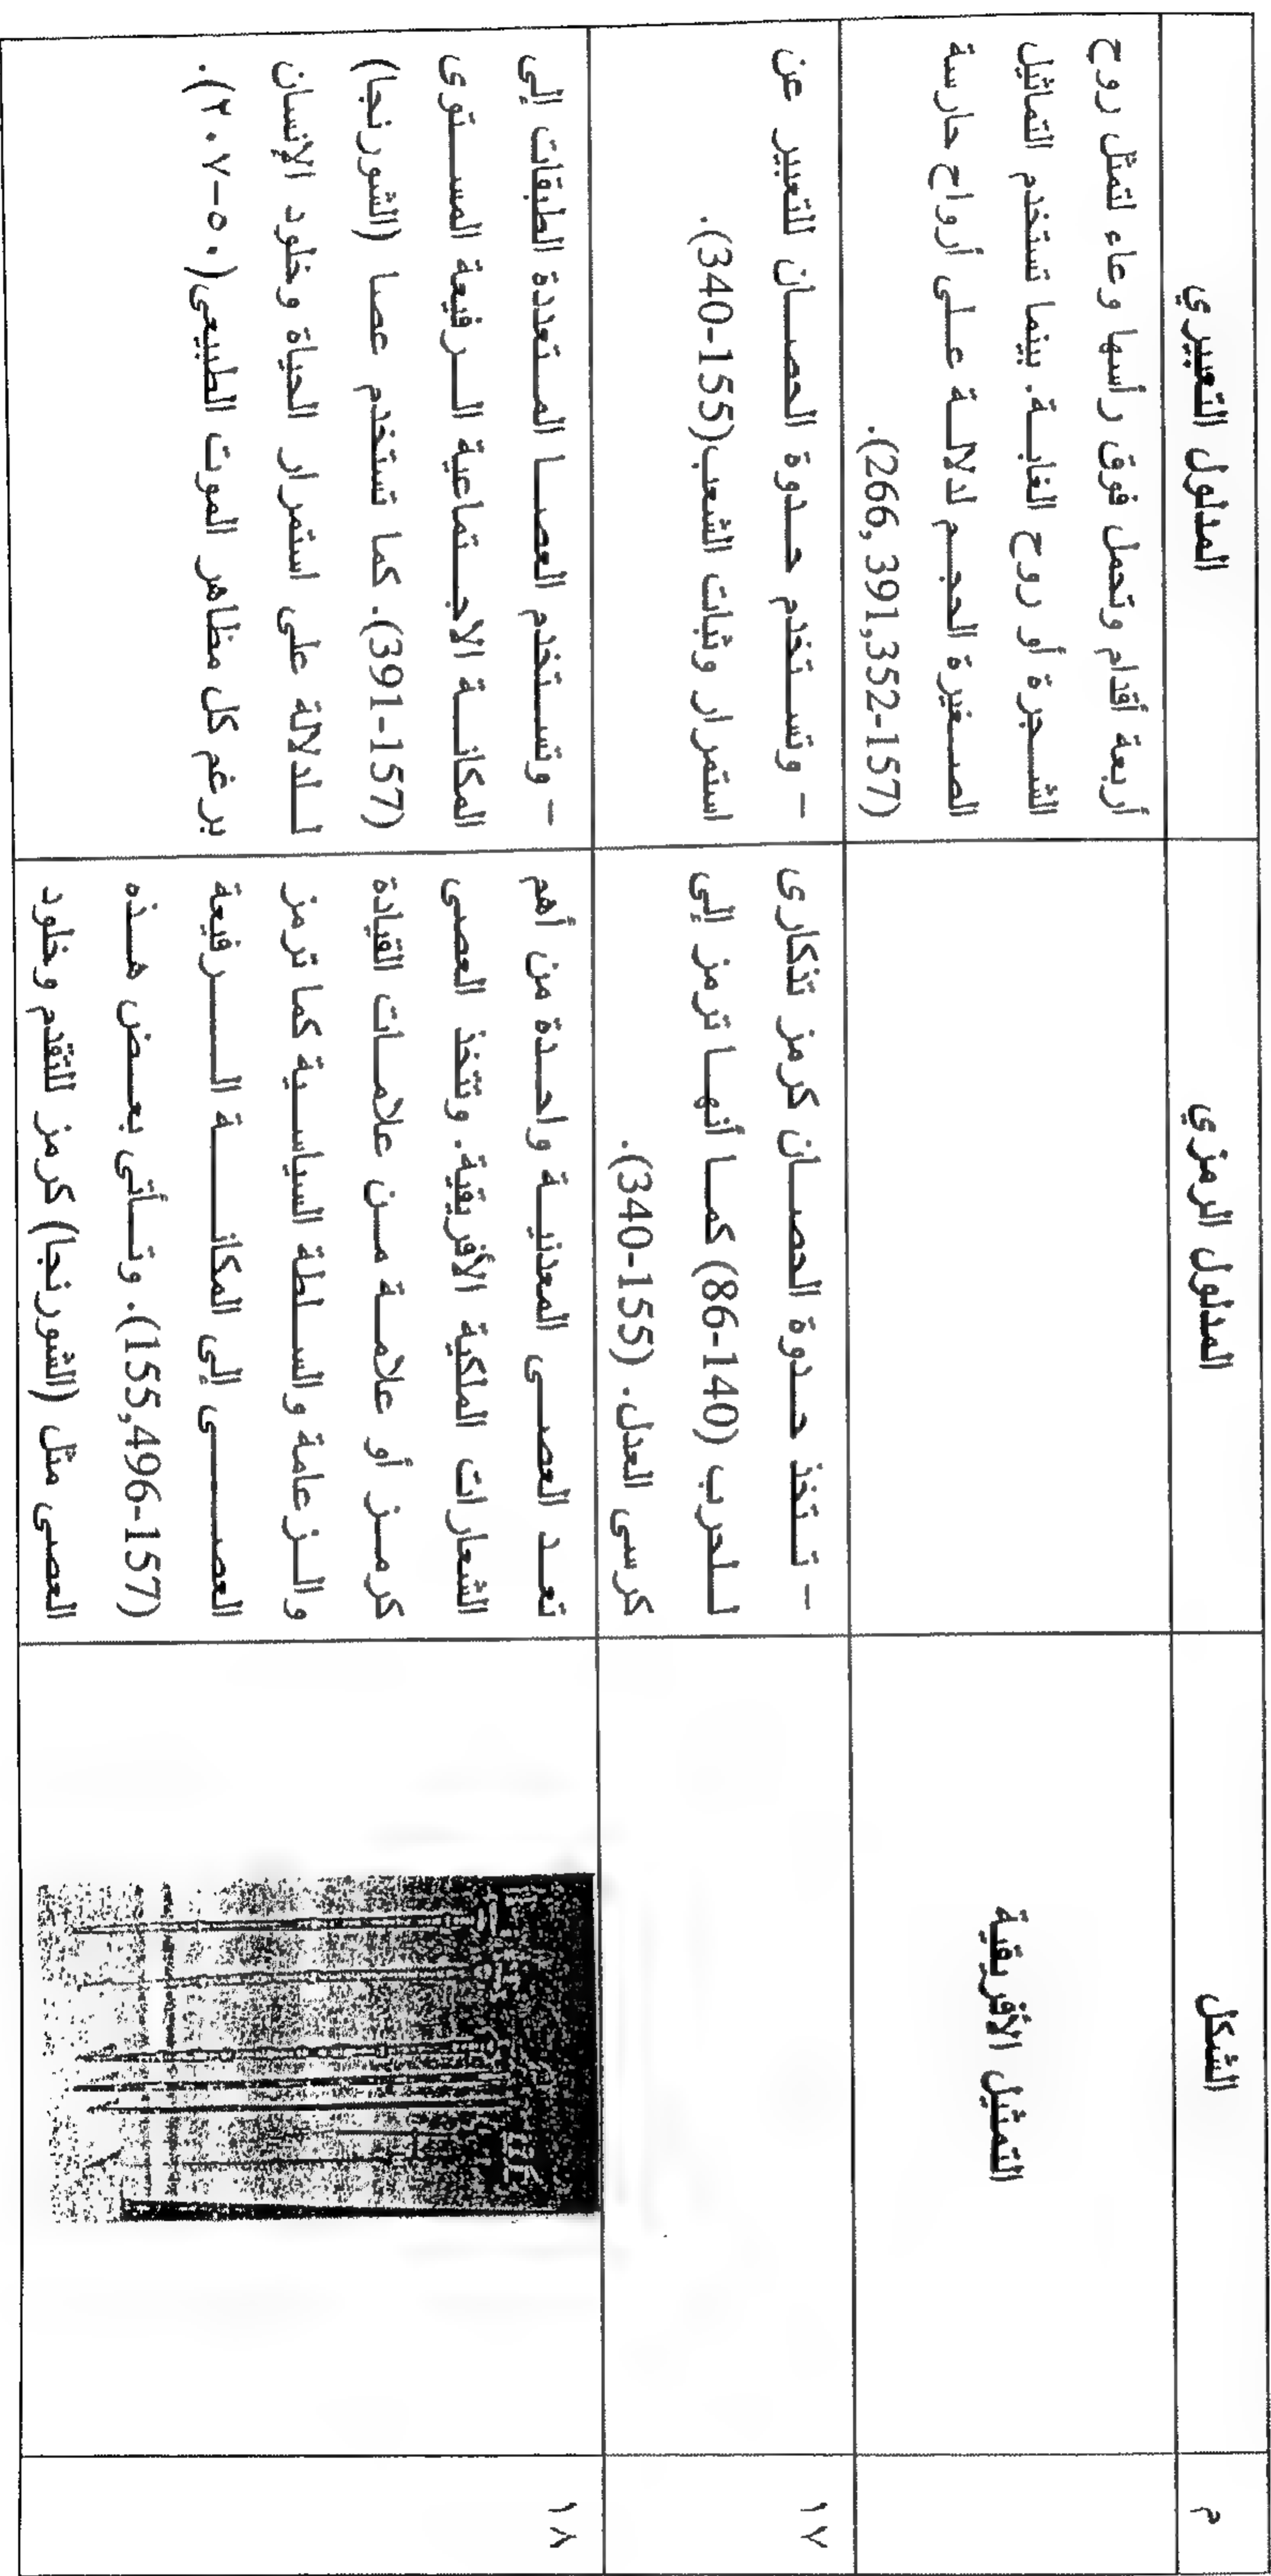 م
الشكل
المدلول الرمزي
المدلول التعبيري
التمثيل الأفريقية
أربعة أقدام وتحمل فوق رأسها وعاء لتمثل روح
الشجرة أو روح الغابة. بينما تستخدم التماثيل
الصغيرة الحجم لدلالة على أرواح حارسة
(266, 391,352-157).
١٧
- تتخذ حدوة الحصان كرمز تذكارى
للحرب (86-140) كما أنها ترمز إلى
كرسى العدل. (340-155).
- وتستخدم حدوة الحصان للتعبير عن
استمرار وثبات الشعب(340-155).
١٨
تعد العصى المعدنية واحدة من أهم
الشعارات الملكية الأفريقية. وتتخذ العصى
كرمز أو علامة من علامات القيادة
والزعامة والسلطة السياسية كما ترمز
العصى إلى المكانة الرفيعة
(155,496-157). وتأتى بعض هذه
العصى مثل (الشورنجا) كرمز للتقدم وخلود
- وتستخدم العصا المتعددة الطبقات إلى
المكانة الاجتماعية الرفيعة المستوى
(391-157). كما تستخدم عصا (الشورنجا)
لدلالة على استمرار الحياة وخلود الإنسان
برغم كل مظاهر الموت الطبيعى(٥٠-٢٠٧).